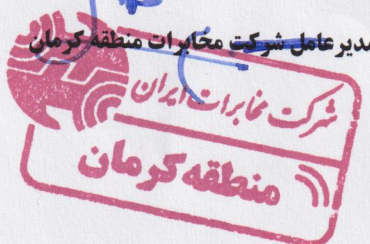 مدیر عامل شرکت مخابرات منطقه کرمان
شرکت مخابرات ایران
منطقه کرمان